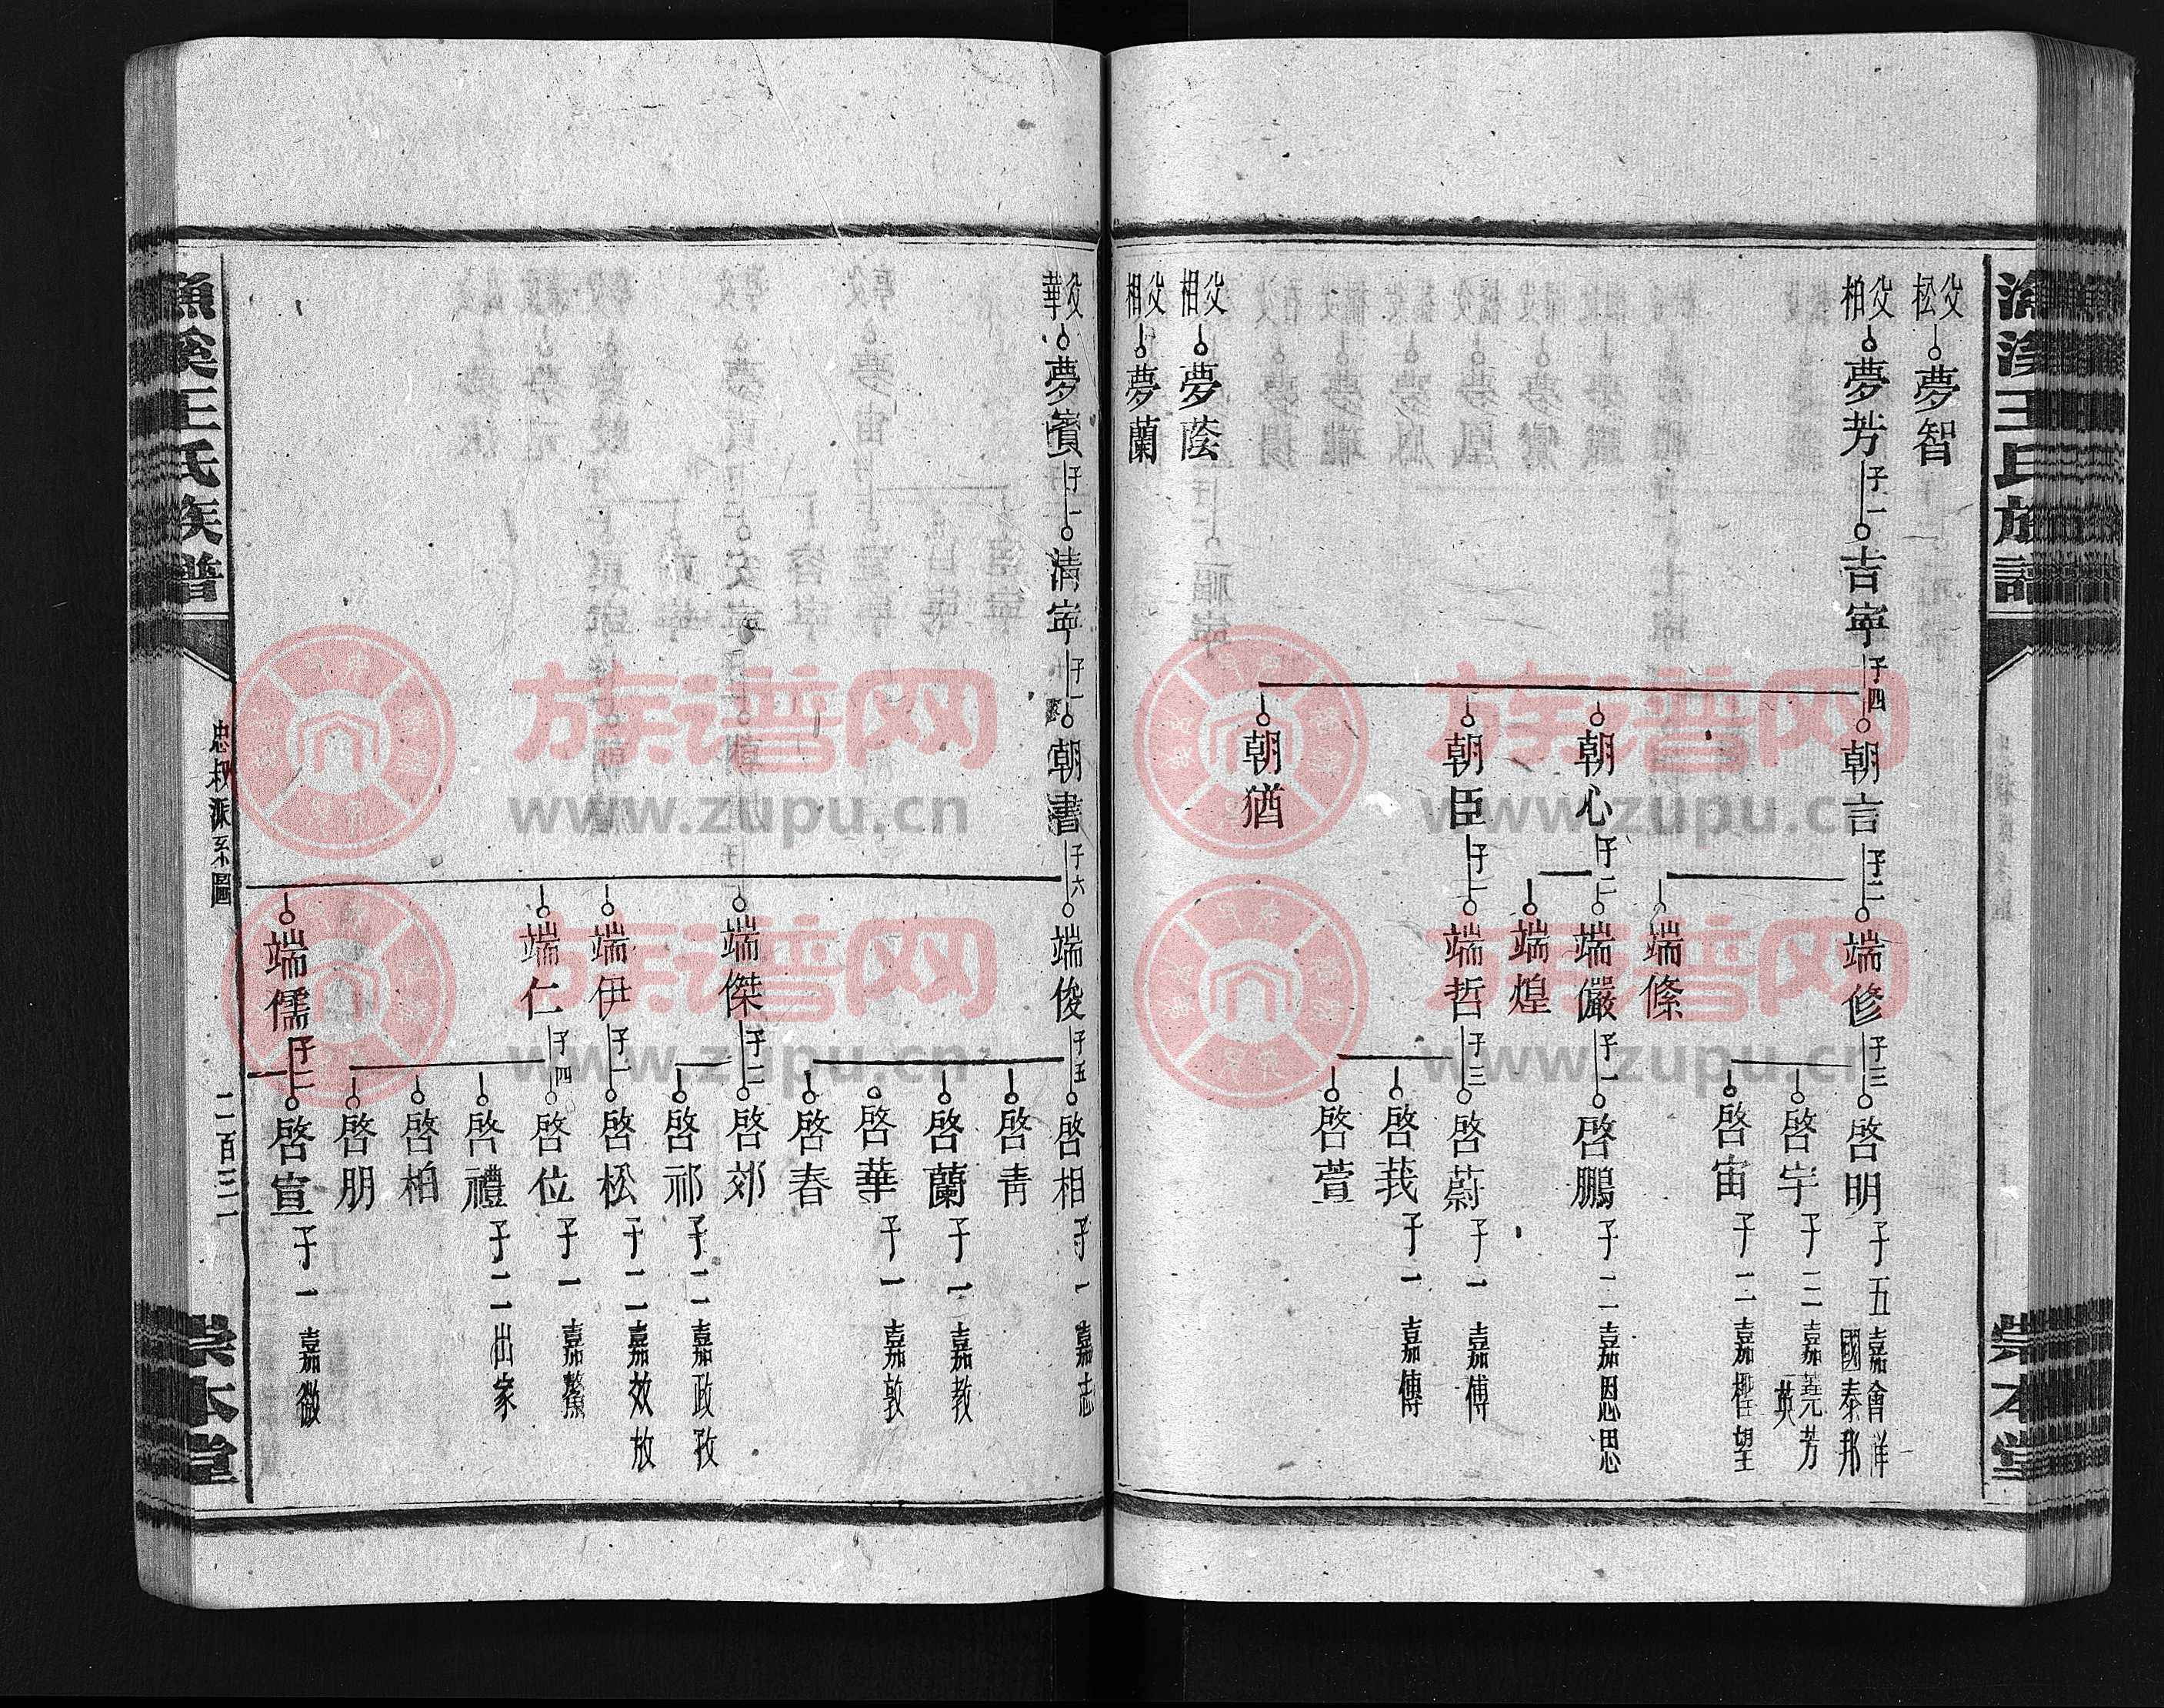 漁溪王氏族譜
崇本堂
父松 夢智
父柏 夢芳 子一 吉寧 子四 朝言 子二 端修 子三 啓明 子五 嘉會洋國泰邦
啓宇 子三 嘉蕘芳英
啓宙 子二 嘉樫望
端絛
朝心 子二 端儼 子一 啓鵬 子二 嘉恩思
端煌
朝臣 子一 端哲 子三 啓蔚 子一 嘉傅
啓莪 子一 嘉傳
啓萱
朝猶
父相 夢蔭
父相 夢蘭
父華 夢賓 子一 清寧 子一 朝書 子六 端俊 子五 啓相 子一 嘉志
啓靑
啓蘭 子一 嘉教
啓華 子一 嘉敦
啓春
端傑 子二 啓郊
啓祁 子二 嘉政孜
端伊 子一 啓松 子二 嘉效放
端仁 子四 啓位 子一 嘉鰲
啓禮 子二 出家
啓柏
啓朋
端儒 子二 啓宣 子一 嘉徵
漁溪王氏族譜
忠叔派系圖
二百三二
崇本堂
族谱网
www.zupu.cn
族谱网
www.zupu.cn
族谱网
www.zupu.cn
族谱网
www.zupu.cn